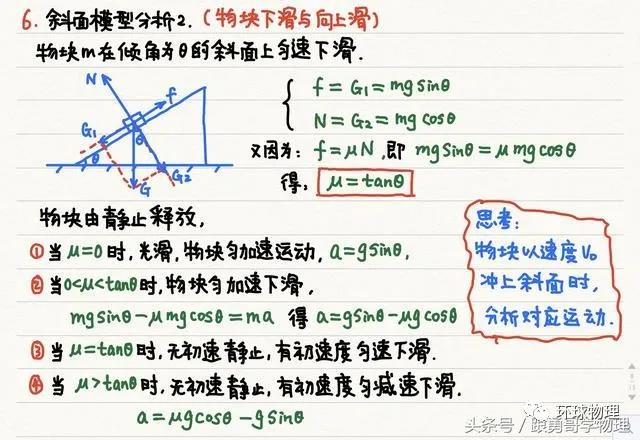 6. 斜面模型分析2.（物块下滑与向上滑）
物块m在倾角为θ的斜面上匀速下滑.
N
f
G₁
θ
θ
G
G₂
f = G₁ = mgsinθ
N = G₂ = mg cosθ
又因为: f = μN, 即 mgsinθ = μmgcosθ
得, μ = tanθ
物块由静止释放,
① 当 μ=0 时, 光滑, 物块匀加速运动, a=gsinθ,
② 当0<μ<tanθ时, 物块匀加速下滑,
mgsinθ-μmgcosθ=ma 得 a=gsinθ-μgcosθ
③ 当 μ=tanθ时, 无初速静止, 有初速度匀速下滑.
④ 当 μ>tanθ时, 无初速静止, 有初速度匀减速下滑.
a = μgcosθ-gsinθ
思考:
物块以速度V₀
冲上斜面时,
分析对应运动.
环球物理
头条号/跟勇哥学物理